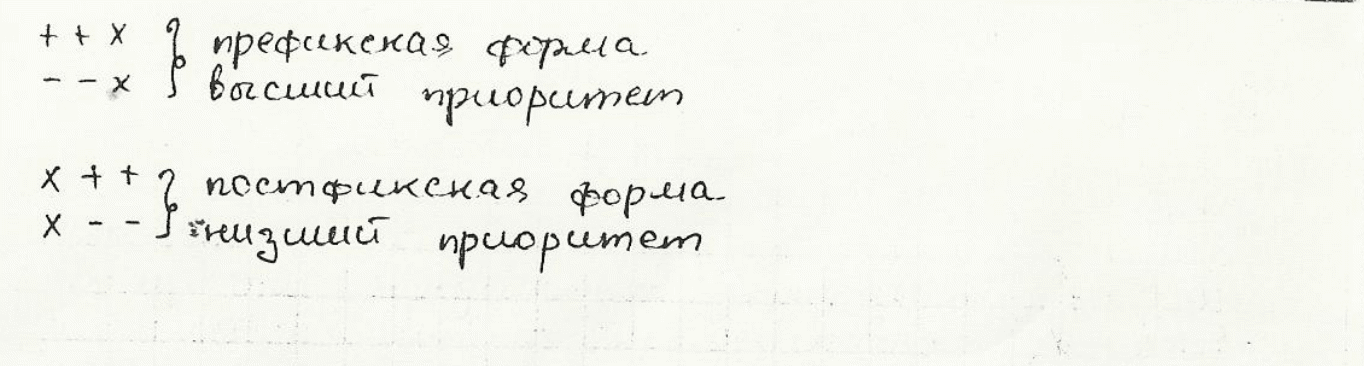 ++x } префикская форма
--x } высший приоритет
x++ } постфикская форма
x-- } низший приоритет